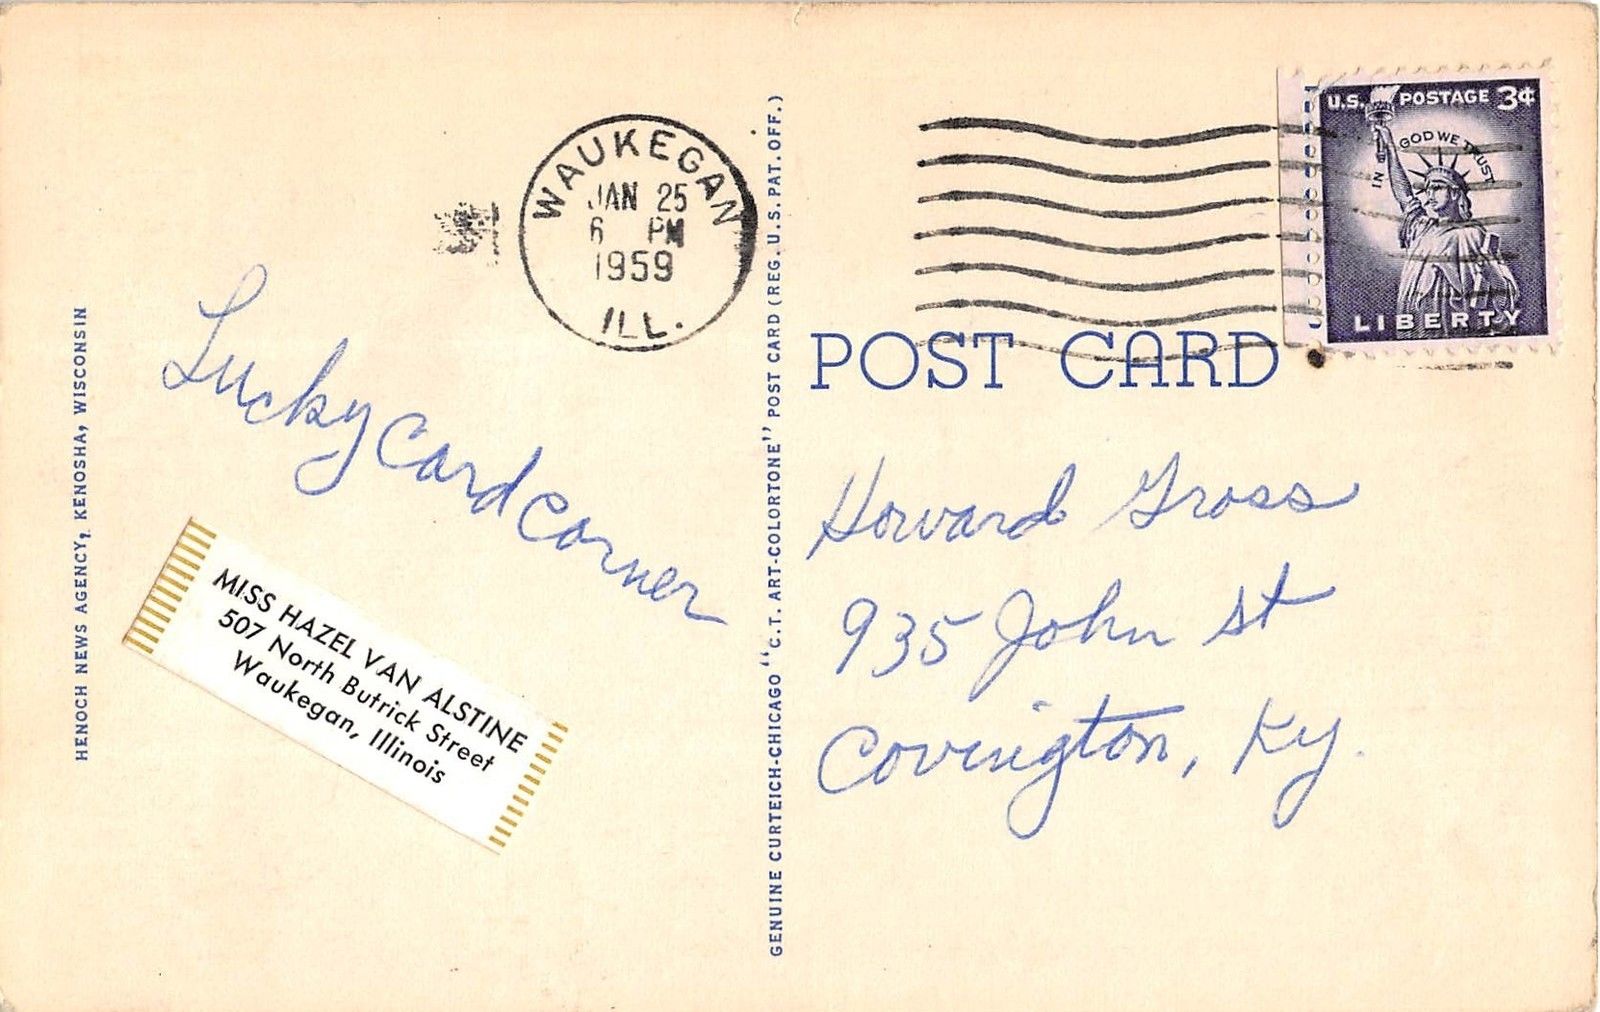 HENOCH NEWS AGENCY, KENOSHA, WISCONSIN
WAUKEGAN
JAN 25
6 PM
1959
ILL.
Lucky Card Corner
MISS HAZEL VAN ALSTINE
507 North Butrick Street
Waukegan, Illinois
GENUINE CURTEICH-CHICAGO "C.T. ART-COLORTONE" POST CARD (REG. U.S. PAT. OFF.)
U.S. POSTAGE 3¢
IN GOD WE TRUST
LIBERTY
POST CARD
Howard Gross
935 John St
Covington, Ky.